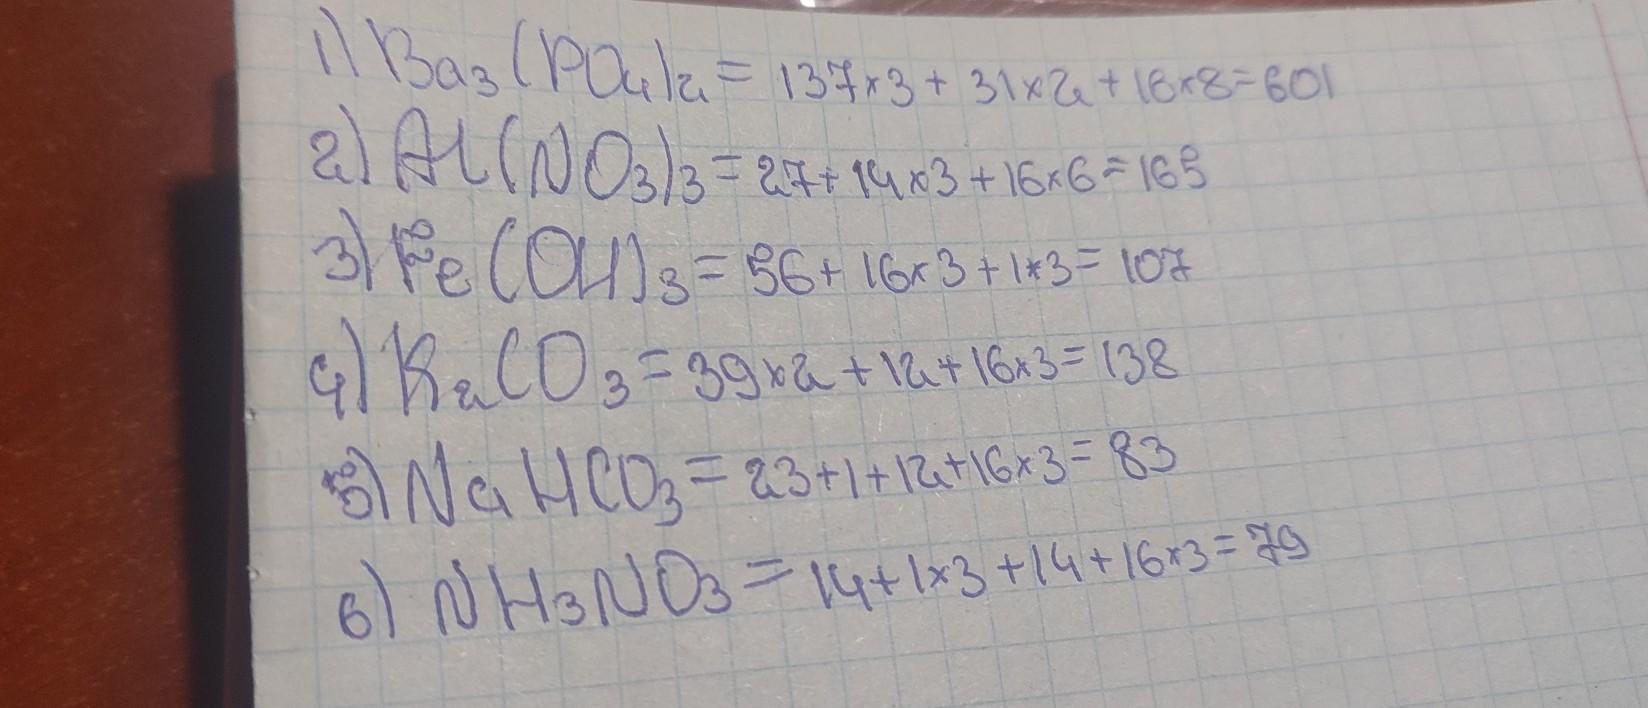 1) Ba₃(PO₄)₂ = 137×3 + 31×2 + 16×8 = 601
2) Al(NO₃)₃ = 27 + 14×3 + 16×6 = 165
3) Fe(OH)₃ = 56 + 16×3 + 1×3 = 107
4) K₂CO₃ = 39×2 + 12 + 16×3 = 138
5) NaHCO₃ = 23 + 1 + 12 + 16×3 = 83
6) NH₃NO₃ = 14 + 1×3 + 14 + 16×3 = 79